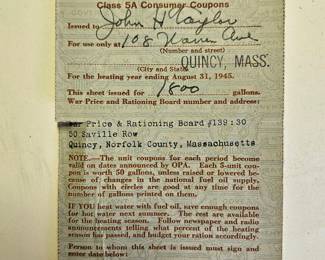 Class 5A Consumer Coupons
Issued to John H Taylor
For use only at 108 Warren Ave
(Number and street)
QUINCY, MASS.
(City and State)
For the heating year ending August 31, 1945.
This sheet issued for 1800 gallons.
War Price and Rationing Board number and address:
War Price & Rationing Board #139:30
50 Saville Row
Quincy, Norfolk County, Massachusetts
NOTE.—The unit coupons for each period become
valid on dates announced by OPA. Each 5-unit cou-
pon is worth 50 gallons, unless raised or lowered be-
cause of changes in the national fuel oil supply.
Coupons with circles are good at any time for the
number of gallons printed on them.
IF YOU heat water with fuel oil, save enough coupons
for hot water next summer. The rest are available
for the heating season. Follow newspaper and radio
announcements telling what percent of the heating
season has passed, and budget your rations accordingly.
Person to whom this sheet is issued must sign and
enter date below: